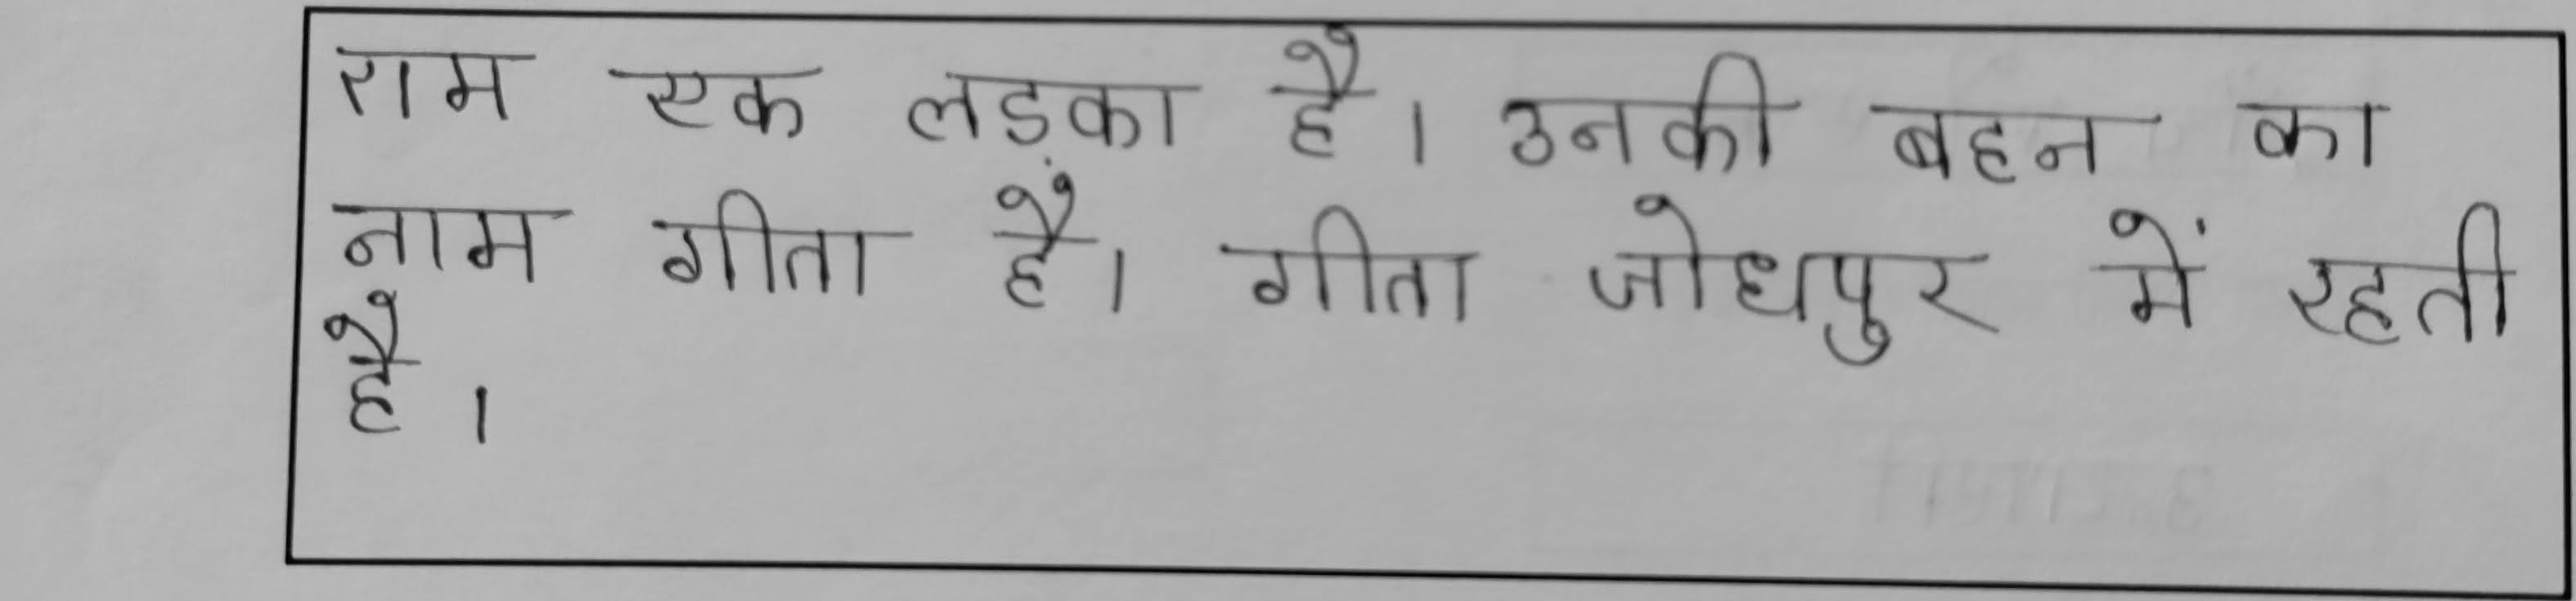 राम एक लड़का है। उनकी बहन का
नाम गीता है। गीता जोधपुर में रहती
है।